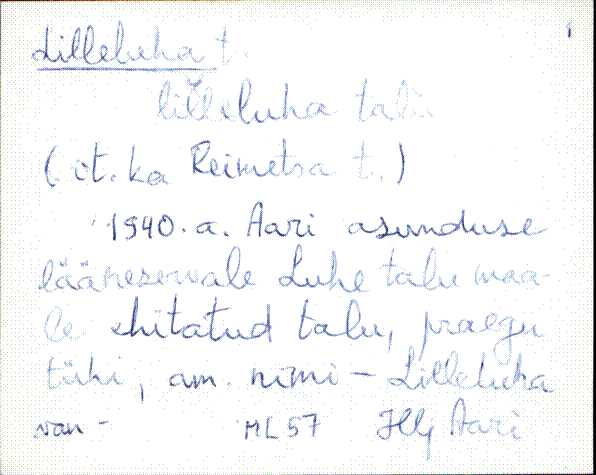 Lilleluha t.
lilleluha talu
(ct. ka Reimetsa t.)
1940. a. Aari asunduse
lääneservale Luhe talu maa-
le ehitatud talu, praegu
tühi, am. nimi – Lilleluha
van - ML 57 Aari